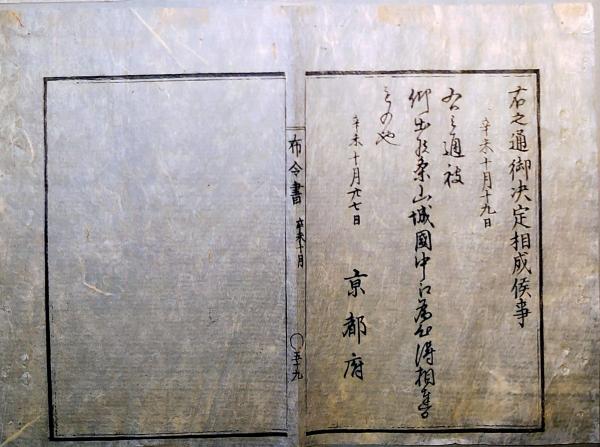 右之通御決定相成候事
辛未十月十九日
右之通被
仰出候条山城國中江為心得相達
もの也
辛未十月廿七日
京都府
布令書 辛未十月 〇五十九